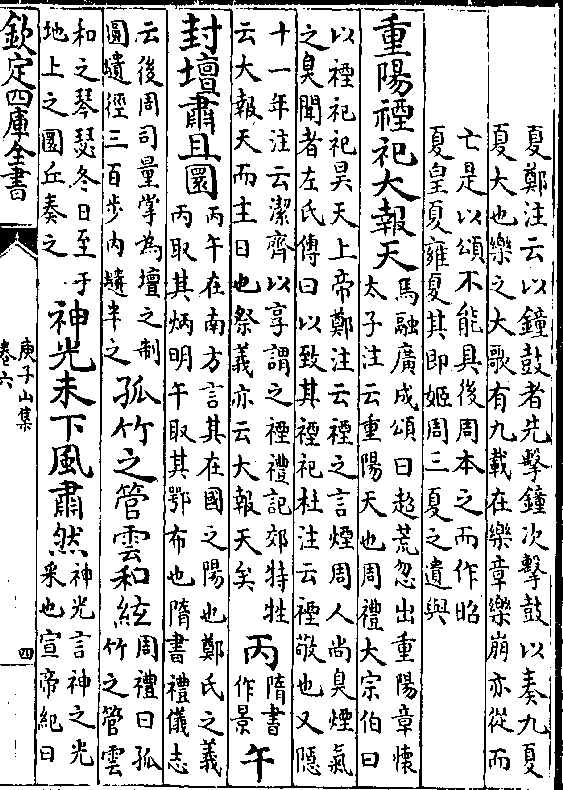 夏鄭注云以鐘鼓者先擊鐘次擊鼓以奏九夏
夏大也樂之大歌有九載在樂章樂崩亦從而
亡是以頌不能具後周本之而作昭
夏皇夏雍夏其即姬周三夏之遺與
重陽禋祀大報天馬融廣成頌曰超荒忽出重陽章懷
太子注云重陽天也周禮大宗伯曰
以禋祀祀昊天上帝鄭注云禋之言煙周人尚臭煙氣
之臭聞者左氏傳曰以致其禋祀杜注云禋敬也又隱
十一年注云潔齊以享謂之禋禮記郊特牲
云大報天而主日也祭義亦云大報天矣
丙隋書作景午
封壇肅且圜丙午在南方言其在國之陽也鄭氏之義
丙取其炳明午取其鄂布也隋書禮儀志
云後周司量掌為壇之制
圜壝徑三百步内壝半之
孤竹之管雲和絃周禮曰孤
竹之管雲
和之琴瑟冬日至于
地上之圜丘奏之
神光未下風肅然神光言神之光
采也宣帝紀曰
欽定四庫全書
庾子山集
卷六
四